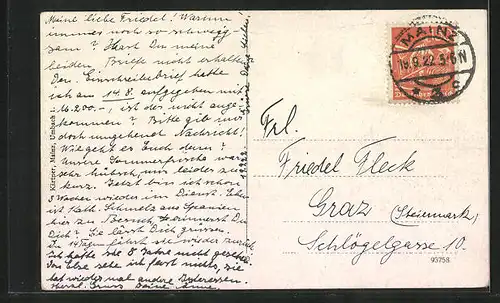 Meine liebe Friedel! Warum
immer noch so schweig-
sam? Hast Du meine
beiden Briefe nicht erhalten
Den Einschreibbrief hatte
ich am 14.8. aufgegeben mit
M. 200.-, ist der nicht ange-
kommen? Bitte gib mir
doch umgehend Nachricht!
Wie geht es Euch denn?
Unsere Sommerfrische war
sehr hübsch, nur leider zu
kurz. Jetzt bin ich schon
3 Wochen wieder im Dienst.
ist Kath. Schmelz aus Spanien
hier zu Besuch,
Dich? Sie lässt Dich grüssen.
In 14 Tagen fährt sie wieder zurück
Ich hatte sie 8 Jahre nicht gesehen
sie
hat wieder mal andere Interessen.
Herzl. Gruss Deine
Kürtzer, Mainz, Umbach
MAINZ
18.9.22.5-6N
* a c
Frl.
Friedel Fleck
Graz (Steiermark)
Schlögelgasse 10.
93758